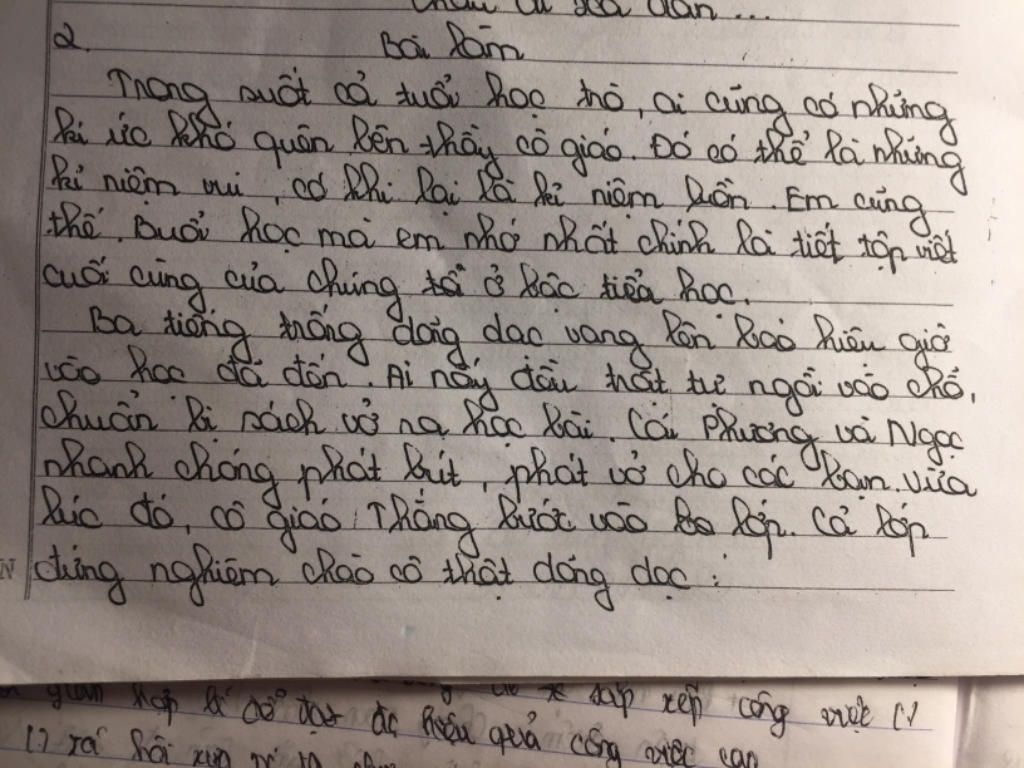 2. Bài làm
Trong suốt cả tuổi học trò, ai cũng có những
kí ức khó quên bên thầy cô giáo. Đó có thể là những
kỉ niệm vui, có khi lại là kỉ niệm buồn. Em cũng
thế. Buổi học mà em nhớ nhất chính là tiết tập viết
cuối cùng của chúng tớ ở bậc tiểu học.
Ba tiếng trống dõng dạc vang lên báo hiệu giờ
vào học đã đến. Ai nấy đều trật tự ngồi vào chỗ,
chuẩn bị sách vở ra học bài. Cái Phương và Ngọc
nhanh chóng phát bút, phát vở cho các bạn. Vừa
lúc đó, cô giáo Thắng bước vào lớp. Cả lớp
đứng nghiêm chào cô thật dõng dạc:
hợp lí để đạt đc hiệu quả công việc cao
sắp xếp công việc